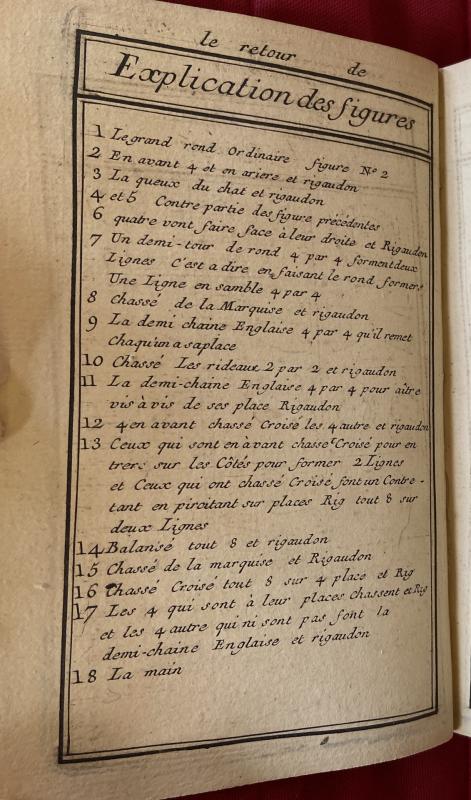 le retour de
Explication des figures
1 Le grand rond Ordinaire figure No 2
2 En avant 4 et en ariere et rigaudon
3 La queux du chat et rigaudon
4 et 5 Contre partie des figure précédentes
6 quatre vont faire face à leur droite et Rigaudon
7 Un demi-tour de rond 4 par 4 forment deux
Lignes C'est a dire en faisant le rond formers
Une Ligne en samble 4 par 4
8 Chassé de la Marquise et rigaudon
9 La demi chaine Englaise 4 par 4 qu'il remet
Chaqu'un a saplace
10 Chassé Les rideaux 2 par 2 et rigaudon
11 La demi-chaine Englaise 4 par 4 pour aître
vis à vis de ses place Rigaudon
12 4 en avant chassé Croisé les 4 autre et rigaudon
13 Ceux qui sont en àvant chassé Croisé pour en
trers sur les Côtés pour former 2 Lignes
et Ceux qui ont chassé Croisé font un Contre-
tant en pircitant sur places Rig tout 8 sur
deux Lignes
14 Balansé tout 8 et rigaudon
15 Chassé de la marquise et Rigaudon
16 Chassé Croisé tout 8 sur 4 place et Rig
17 Les 4 qui sont à leur places chassent et Rig
et les 4 autre qui ni sont pas font la
demi-chaine Englaise et rigaudon
18 La main